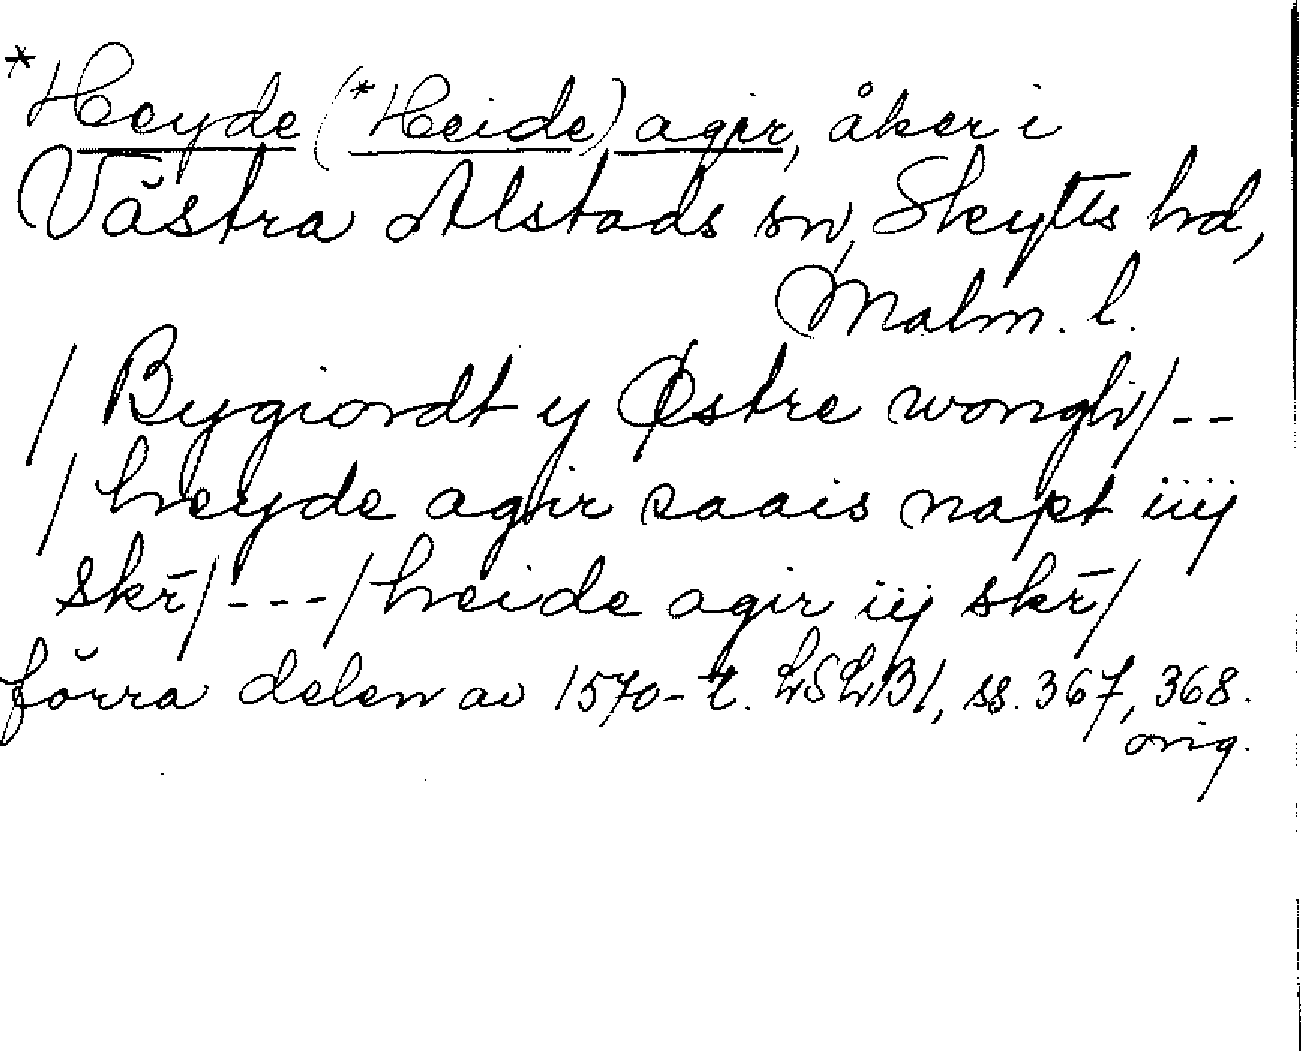 *Heyde (*Heide) agir, åker i
Västra Alstads sn, Skytts hd,
Malm. l.
/ Bygiordt y Østre wongh/--
/ heyde agir saais napt iiij
skr̄/---/heide agir iij skr̄/
förra delen av 1570-t. LSLB1, ss. 367, 368.
orig.